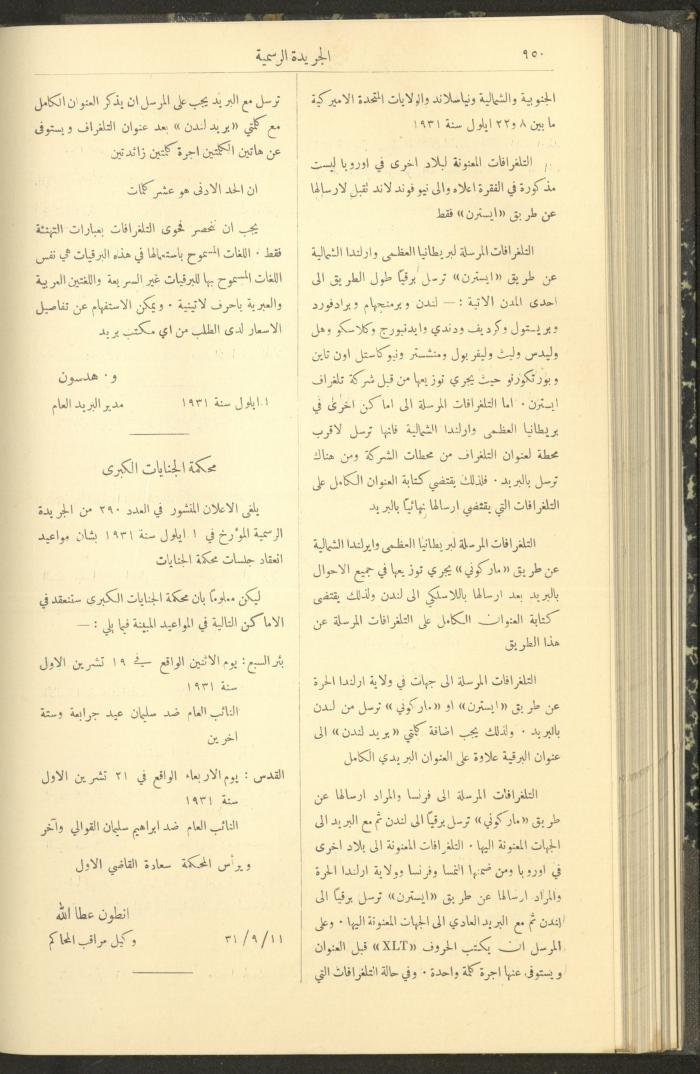 ٩٥٠
الجريدة الرسمية
الجنوبية والشمالية ونياسلاند والولايات المتحدة الاميركية
ما بين ٨ و٢٢ ايلول سنة ١٩٣١
التلغرافات المعنونة لبلاد اخرى في اوروبا ليست
مذكورة في الفقرة اعلاه والى نيو فوند لاند تقبل لارسالها
عن طريق «ايسترن» فقط
التلغرافات المرسلة لبريطانيا العظمى وارلندا الشمالية
عن طريق «ايسترن» ترسل برقيًا طول الطريق الى
احدى المدن الاتية : — لندن وبرمنجهام وبرادفورد
وبريستول وكرديف ودندي وايدنبورج وكلاسكو وهل
وليدس وليث وليفربول ومنشستر ونيوكاستل اون تاين
وبورتكورنو حيث يجري توزيعها من قبل شركة تلغراف
ايسترن ٠ اما التلغرافات المرسلة الى اماكن اخرى في
بريطانيا العظمى وارلندا الشمالية فانها ترسل لاقرب
محطة لعنوان التلغراف من محطات الشركة ومن هناك
ترسل بالبريد ٠ فلذلك يقتضي كتابة العنوان الكامل على
التلغرافات التي يقتضي ارسالها نهائيًا بالبريد
التلغرافات المرسلة لبريطانيا العظمى وايرلندا الشمالية
عن طريق «ماركوني» يجري توزيعها في جميع الاحوال
بالبريد بعد ارسالها باللاسلكي الى لندن ولذلك يقتضى
كتابة العنوان الكامل على التلغرافات المرسلة عن
هذا الطريق
التلغرافات المرسلة الى جهات في ولاية ارلندا الحرة
عن طريق «ايسترن» او «ماركوني» ترسل من لندن
بالبريد ٠ ولذلك يجب اضافة كلمتي «بريد لندن» الى
عنوان البرقية علاوة على العنوان البريدي الكامل
التلغرافات المرسلة الى فرنسا والمراد ارسالها عن
طريق «ماركوني» ترسل برقيًا الى لندن ثم مع البريد الى
الجهات المعنونة اليها ٠ التلغرافات المعنونة الى بلاد اخرى
في اوروبا ومن ضمنها النمسا وفرنسا وولاية ارلندا الحرة
والمراد ارسالها عن طريق «ايسترن» ترسل برقيًا الى
لندن ثم مع البريد العادي الى الجهات المعنونة اليها ٠ وعلى
المرسل ان يكتب الحروف «XLT» قبل العنوان
ويستوفى عنها اجرة كلمة واحدة ٠ وفي حالة التلغرافات التي
ترسل مع البريد يجب على المرسل ان يذكر العنوان الكامل
مع كلمتي «بريد لندن» بعد عنوان التلغراف ويستوفى
عن هاتين الكلمتين اجرة كلمتين زائدتين
ان الحد الادنى هو عشر كلمات
يجب ان تنحصر فحوى التلغرافات بعبارات التهنئة
فقط ٠ اللغات المسموح باستعمالها في هذه البرقيات هي نفس
اللغات المسموح بها للبرقيات غير السريعة واللغتين العربية
والعبرية باحرف لاتينية ٠ ويمكن الاستفهام عن تفاصيل
الاسعار لدى الطلب من اي مكتب بريد
و٠ هدسون
١ ايلول سنة ١٩٣١ مدير البريد العام
محكمة الجنايات الكبرى
يلغى الاعلان المنشور في العدد ٢٩٠ من الجريدة
الرسمية المؤرخ في ١ ايلول سنة ١٩٣١ بشان مواعيد
انعقاد جلسات محكمة الجنايات
ليكن معلومًا بان محكمة الجنايات الكبرى ستنعقد في
الاماكن التالية في المواعيد المبينة فيما يلي : —
بئر السبع : يوم الاثنين الواقع في ١٩ تشرين الاول
سنة ١٩٣١
النائب العام ضد سليمان عيد جرابعة وستة
اخرين
القدس : يوم الاربعاء الواقع في ٢١ تشرين الاول
سنة ١٩٣١
النائب العام ضد ابراهيم سليمان القوالي وآخر
ويرأس المحكمة سعادة القاضي الاول
انطون عطا الله
٣١/٩/١١ وكيل مراقب المحاكم